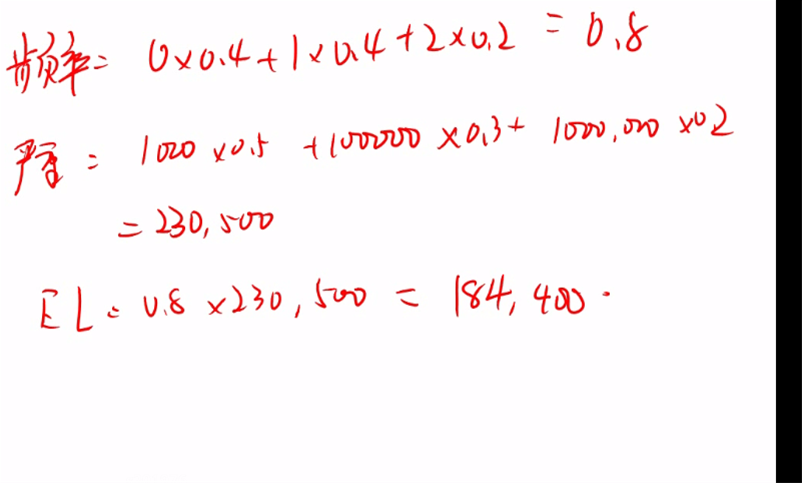 频率= 0×0.4+1×0.4+2×0.2 = 0.8
严重: 1000×0.5 +100000×0.3+ 1000,000×0.2
= 230,500
EL= 0.8×230,500 = 184,400.